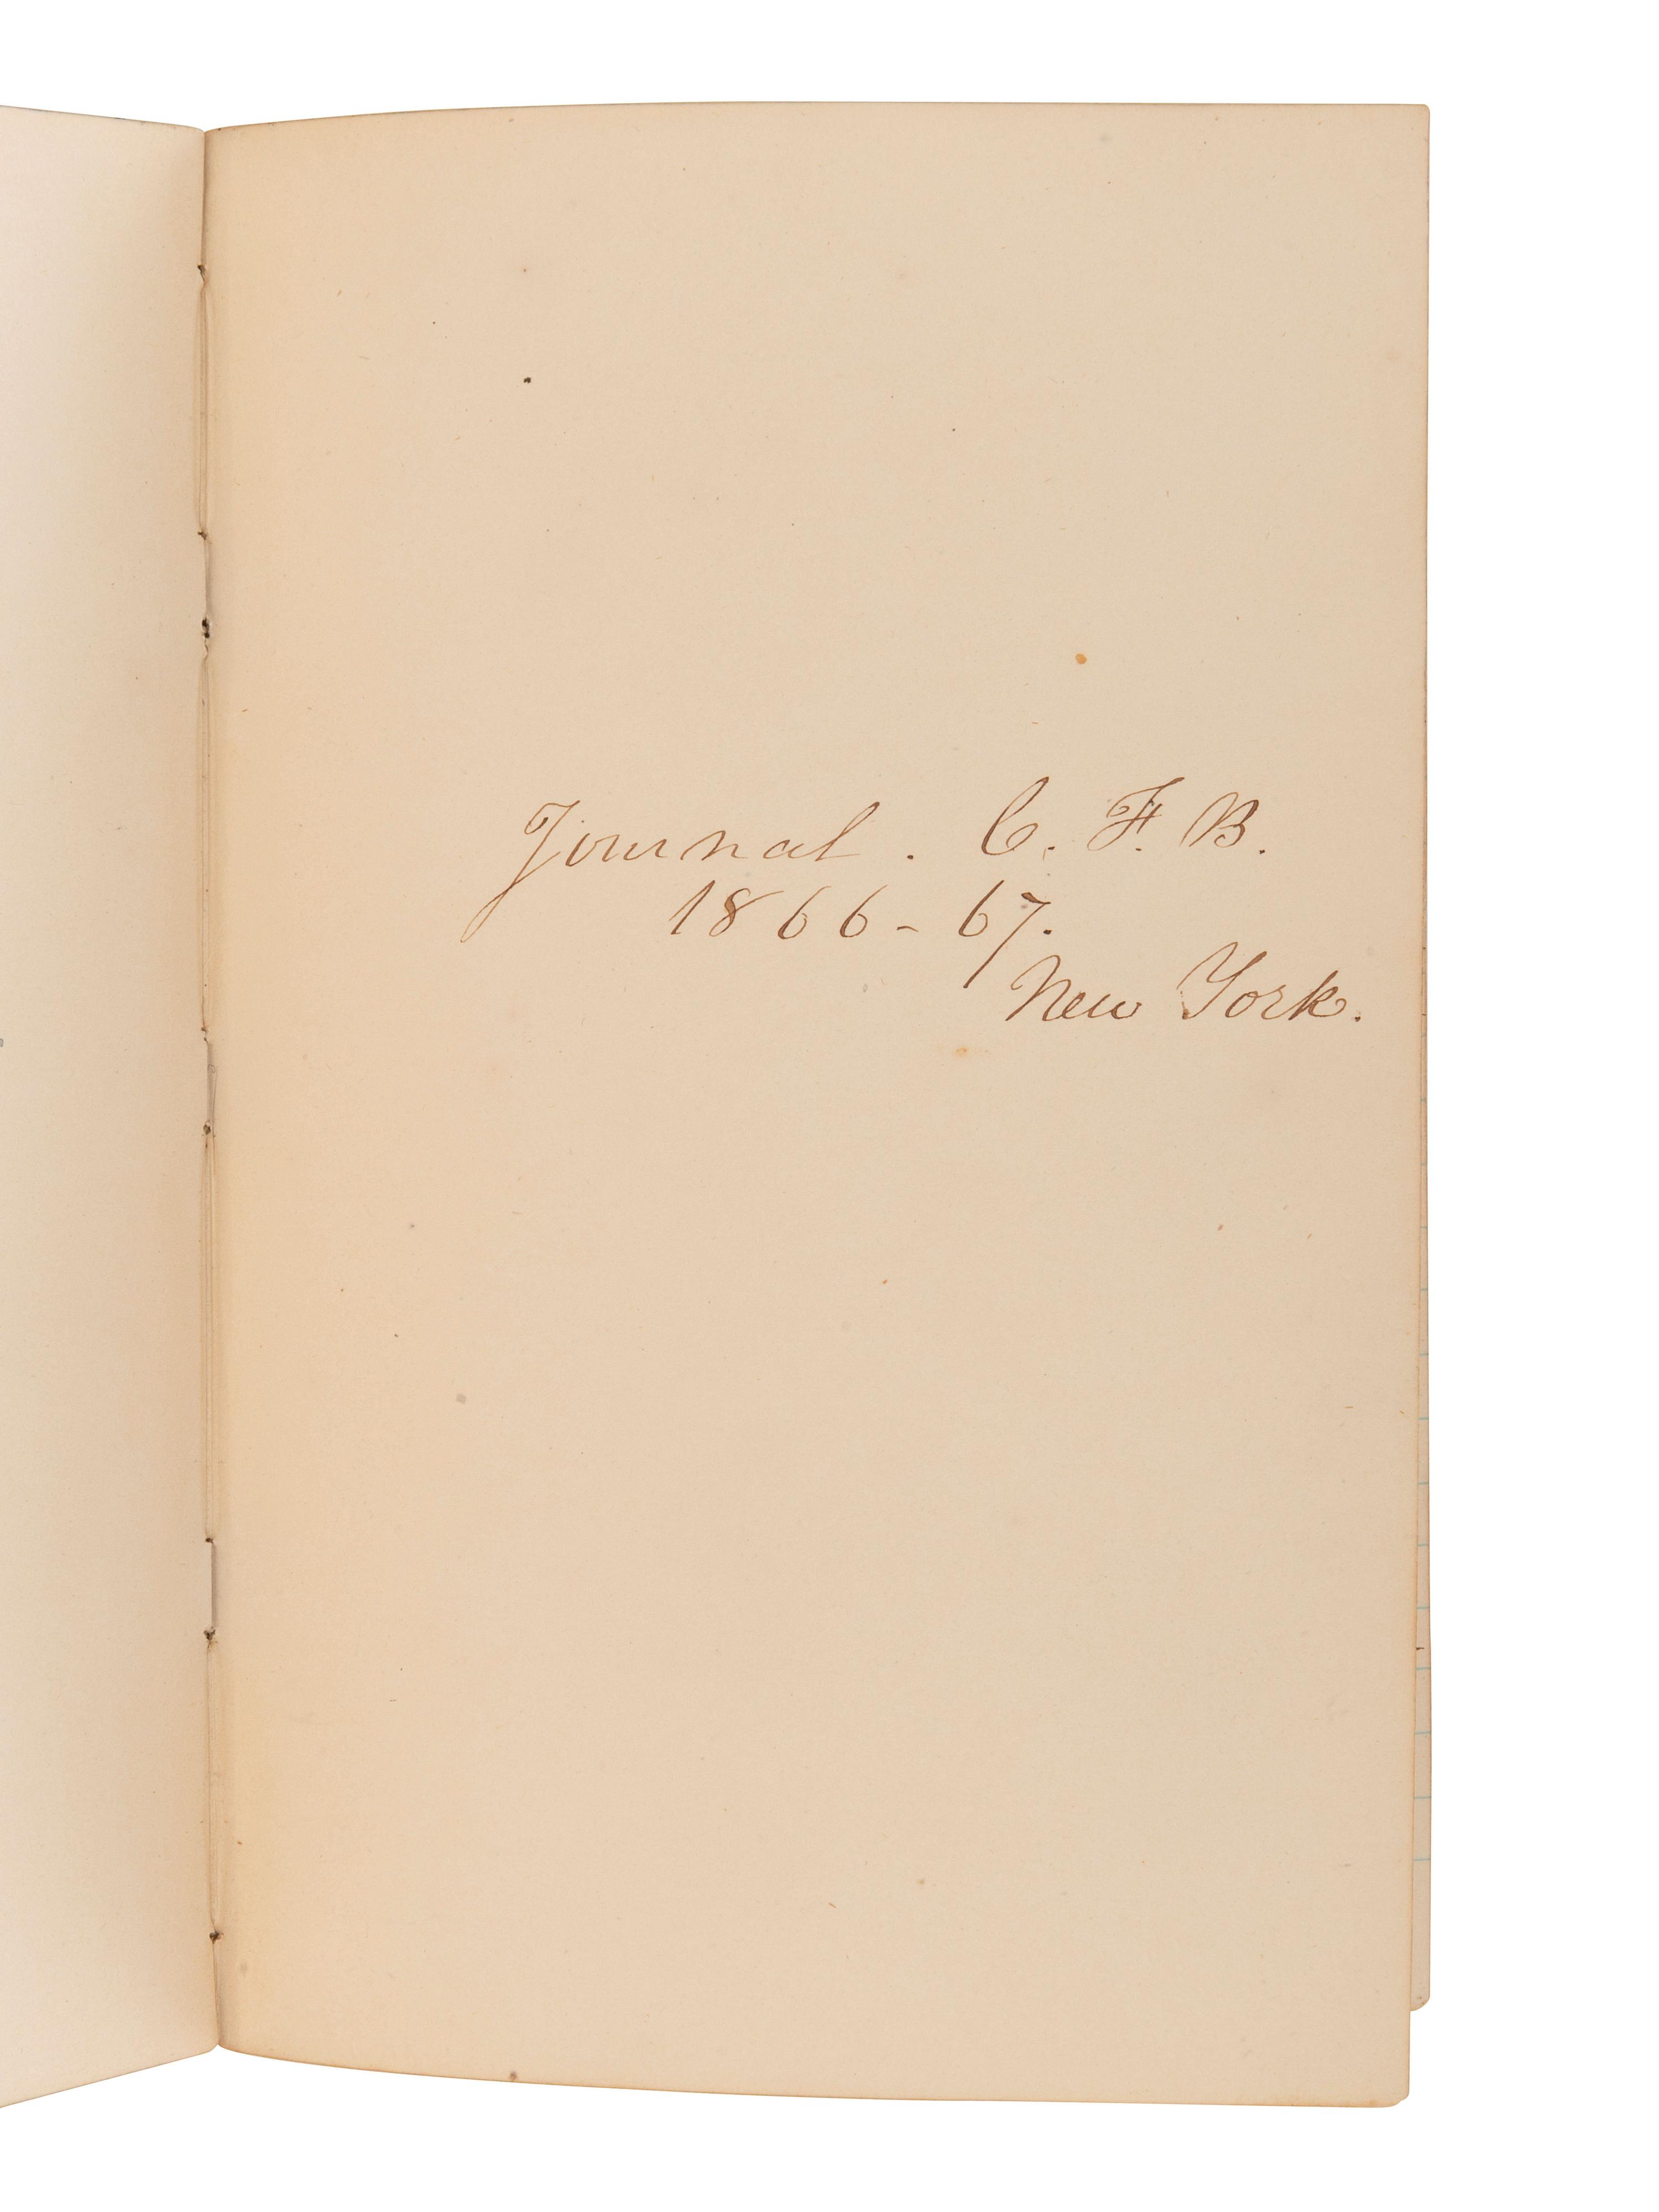 Journal. C. F. B.
1866-67.
New York.